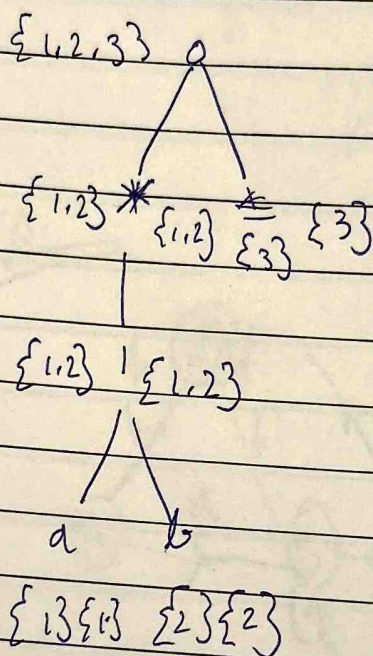 {1,2,3} o
{1,2} * {1,2} {3} {3}
{1,2} | {1,2}
a b
{1}{1} {2}{2}